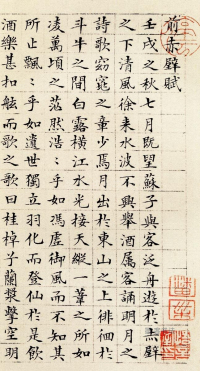 前赤壁賦
壬戌之秋七月既望蘇子與客泛舟遊於赤壁
之下清風徐來水波不興舉酒属客誦明月之
詩歌窈窕之章少焉月出於東山之上徘徊於
斗牛之間白露横江水光接天縱一葦之所如
凌萬頃之茫然浩〻乎如馮虚御風而不知其
所止飄〻乎如遺世獨立羽化而登仙於是飲
酒樂甚扣舷而歌之歌曰桂棹兮蘭槳擊空明